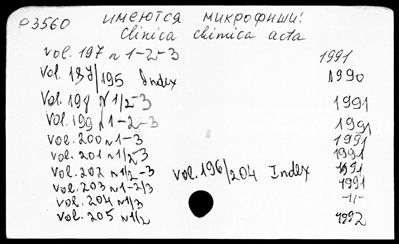 P3560 имеются микрофиши!
Clinica chimica acta
vol. 197 N 1-2-3 1991
Vol. 187/195 Index 1990
Vol. 198 N 1/2-3 1991
Vol. 199 N 1-2-3 1991
vol. 200 N 1-3 1991
vol. 201 N 1/2-3 1991
vol. 202 N 1/2-3 vol. 196/204 Index 1991
vol. 203 N 1-2/3 1991
vol. 204 N 1/3 -11-
vol. 205 N 1/2 1992